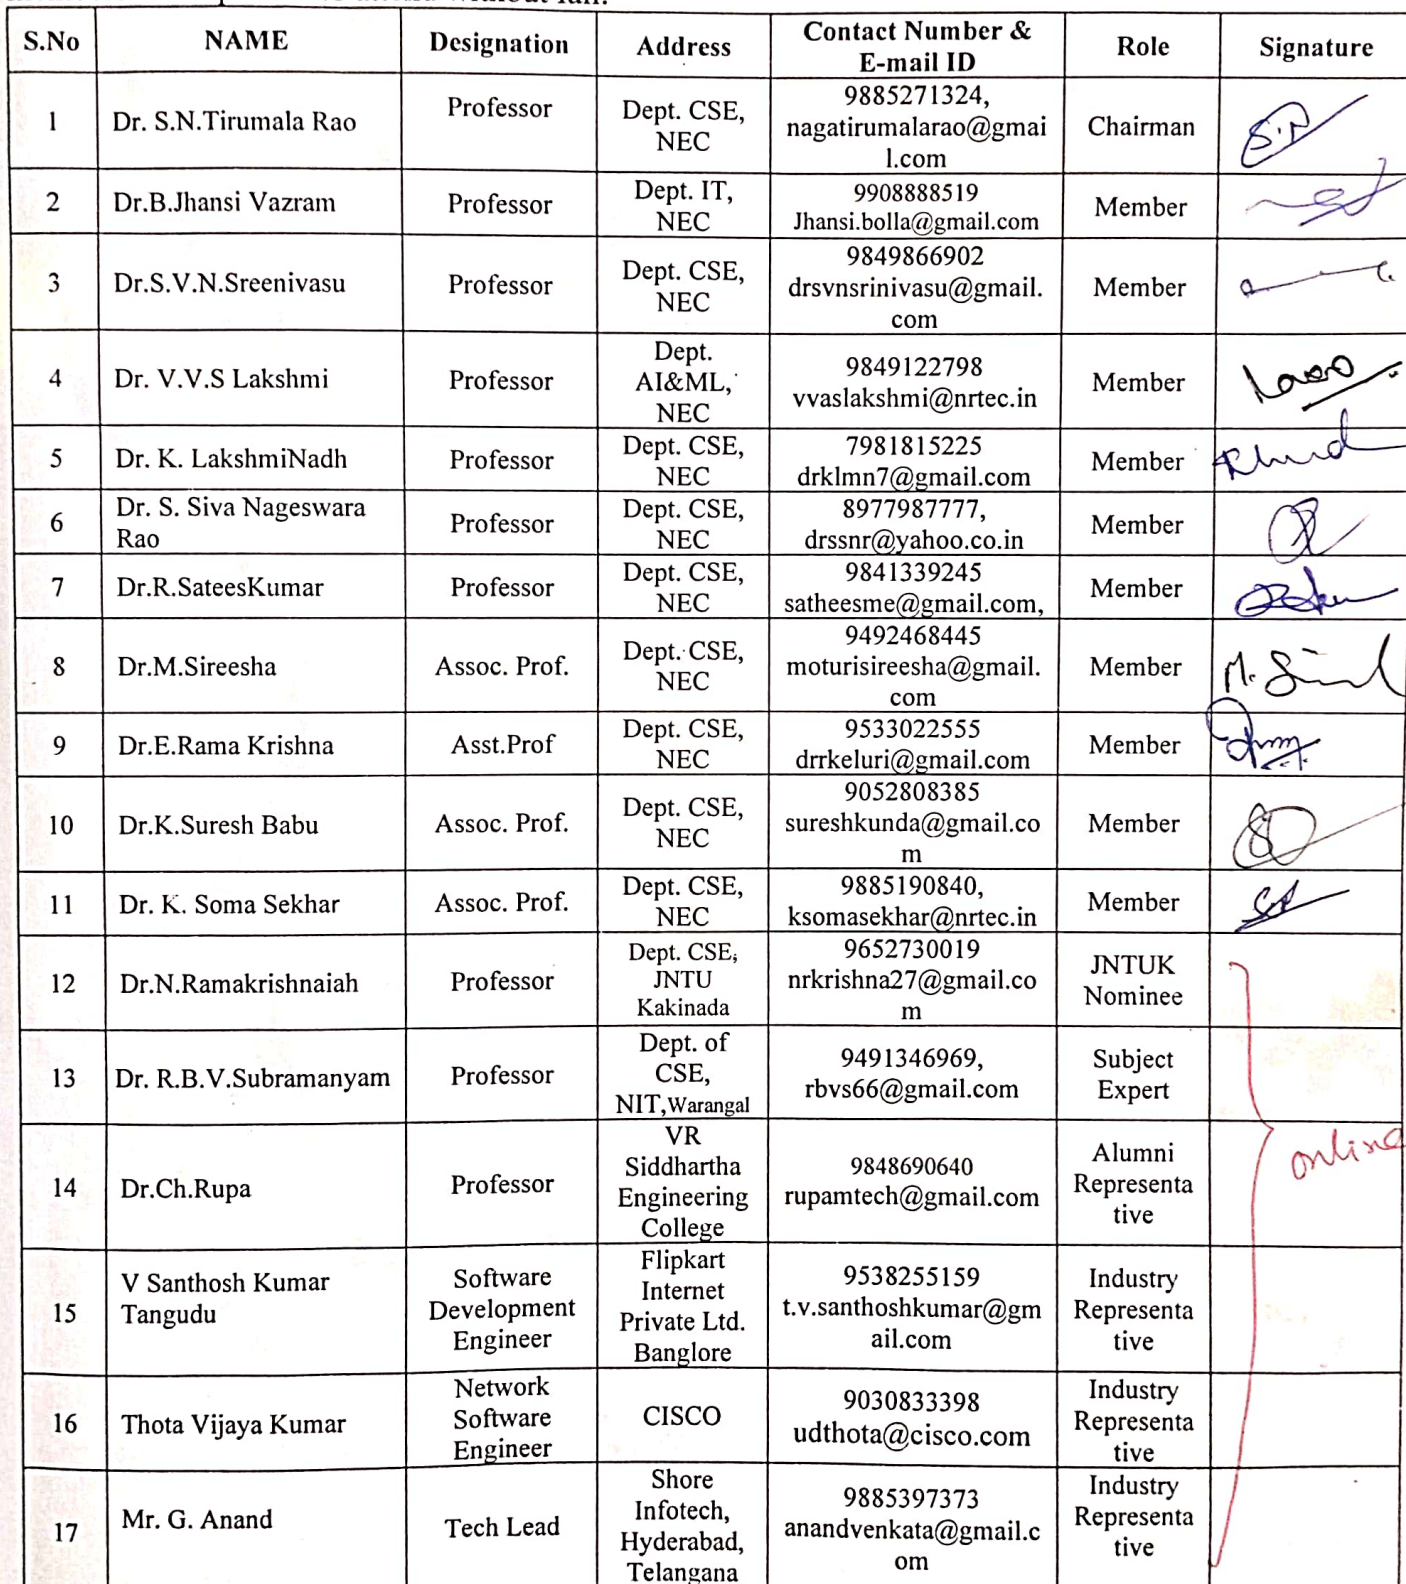 without fail.
S.No NAME Designation Address Contact Number & E-mail ID Role Signature
1 Dr. S.N.Tirumala Rao Professor Dept. CSE, NEC 9885271324, nagatirumalarao@gmail.com Chairman
2 Dr.B.Jhansi Vazram Professor Dept. IT, NEC 9908888519 Jhansi.bolla@gmail.com Member
3 Dr.S.V.N.Sreenivasu Professor Dept. CSE, NEC 9849866902 drsvnsrinivasu@gmail.com Member
4 Dr. V.V.S Lakshmi Professor Dept. AI&ML, NEC 9849122798 vvaslakshmi@nrtec.in Member
5 Dr. K. LakshmiNadh Professor Dept. CSE, NEC 7981815225 drklmn7@gmail.com Member
6 Dr. S. Siva Nageswara Rao Professor Dept. CSE, NEC 8977987777, drssnr@yahoo.co.in Member
7 Dr.R.SateesKumar Professor Dept. CSE, NEC 9841339245 satheesme@gmail.com, Member
8 Dr.M.Sireesha Assoc. Prof. Dept. CSE, NEC 9492468445 moturisireesha@gmail.com Member
9 Dr.E.Rama Krishna Asst.Prof Dept. CSE, NEC 9533022555 drrkeluri@gmail.com Member
10 Dr.K.Suresh Babu Assoc. Prof. Dept. CSE, NEC 9052808385 sureshkunda@gmail.com Member
11 Dr. K. Soma Sekhar Assoc. Prof. Dept. CSE, NEC 9885190840, ksomasekhar@nrtec.in Member
12 Dr.N.Ramakrishnaiah Professor Dept. CSE, JNTU Kakinada 9652730019 nrkrishna27@gmail.com JNTUK Nominee
13 Dr. R.B.V.Subramanyam Professor Dept. of CSE, NIT,Warangal 9491346969, rbvs66@gmail.com Subject Expert
14 Dr.Ch.Rupa Professor VR Siddhartha Engineering College 9848690640 rupamtech@gmail.com Alumni Representative online
15 V Santhosh Kumar Tangudu Software Development Engineer Flipkart Internet Private Ltd. Banglore 9538255159 t.v.santhoshkumar@gmail.com Industry Representative
16 Thota Vijaya Kumar Network Software Engineer CISCO 9030833398 udthota@cisco.com Industry Representative
17 Mr. G. Anand Tech Lead Shore Infotech, Hyderabad, Telangana 9885397373 anandvenkata@gmail.com Industry Representative